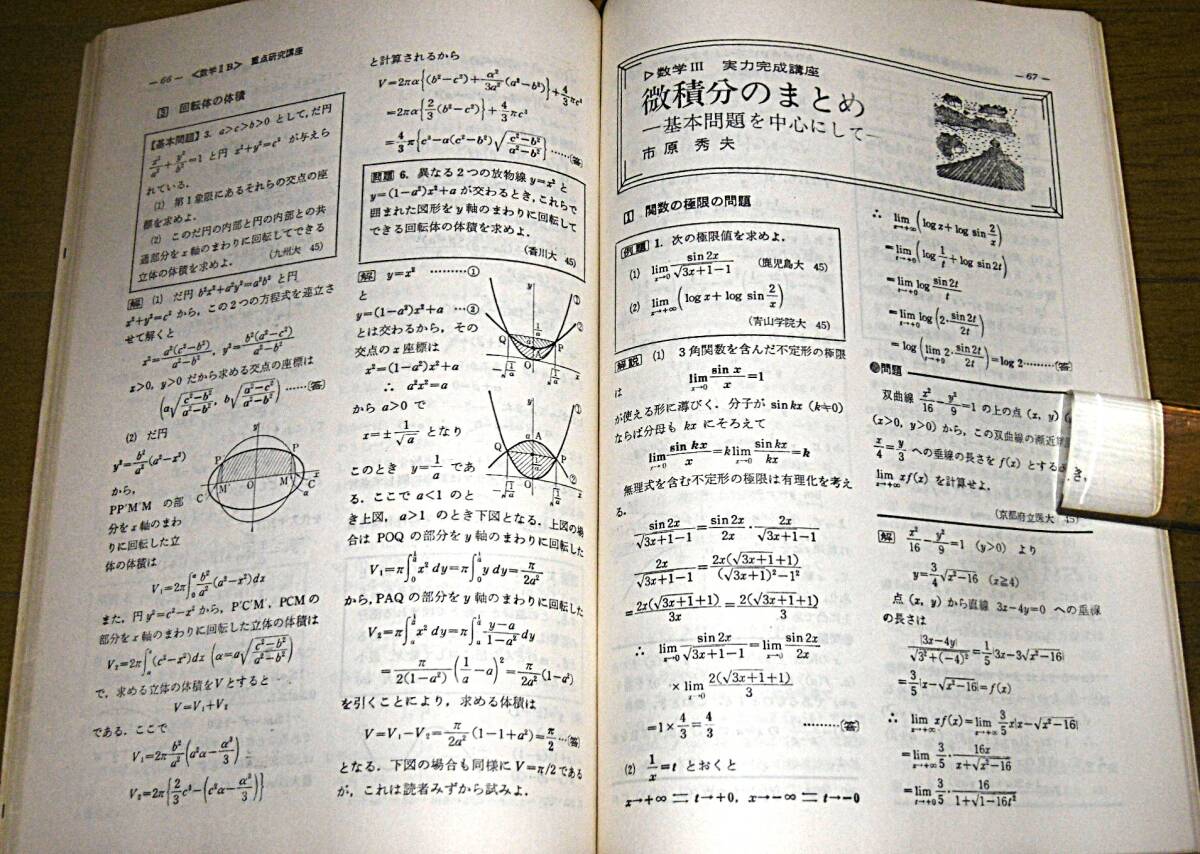 ― 66 ― 〈数学ⅡB〉 重点研究講座
③ 回転体の体積
【基本問題】3. a>c>b>0 として,だ円
x²/a²+y²/b²=1 と円 x²+y²=c² が与えら
れている.
(1) 第1象限にあるそれらの交点の座
標を求めよ.
(2) このだ円の内部と円の内部との共
通部分をx軸のまわりに回転してできる
立体の体積を求めよ.
(九州大 45)
解 (1) だ円 b²x²+a²y²=a²b² と円
x²+y²=c² から,この2つの方程式を連立さ
せて解くと
x²=a²(c²-b²)/(a²-b²), y²=b²(a²-c²)/(a²-b²)
x>0, y>0 だから求める交点の座標は
(a√((c²-b²)/(a²-b²)), b√((a²-c²)/(a²-b²))) ……(答)
(2) だ円
y²=b²/a²(a²-x²)
から,
PP'M'M の部
分をx軸のまわ
りに回転した立
体の体積は
y
P' P
C' M' O M C a x
V₁=2π∫₀^α b²/a²(a²-x²)dx
また,円 y²=c²-x² から,P'C'M', PCMの
部分をx軸のまわりに回転した立体の体積は
V₂=2π∫_α^c(c²-x²)dx (α=a√((c²-b²)/(a²-b²)))
で,求める立体の体積をVとすると
V=V₁+V₂
である.ここで
V₁=2π b²/a²(a²α-α³/3)
V₂=2π{2/3c³-(c²α-α³/3)}
と計算されるから
V=2πα{(b²-c²)+α²/3a²(a²-b²)}+4/3πc³
=2πα{2/3(b²-c²)}+4/3πc³
=4/3π{c³-a(c²-b²)√((c²-b²)/(a²-b²))} ……(答)
問題 6. 異なる2つの放物線 y=x² と
y=(1-a²)x²+a が交わるとき,これらで
囲まれた図形をy軸のまわりに回転して
できる回転体の体積を求めよ.
(香川大 45)
解 y=x² …………①
と
y=(1-a²)x²+a …②
とは交わるから,その
交点のx座標は
x²=(1-a²)x²+a
∴ a²x²=a
から a>0 で
x=±1/√a となり
このとき y=1/a であ
る.ここで a<1 のと
き上図,a>1 のとき下図となる.上図の場
合は POQ の部分をy軸のまわりに回転した
V₁=π∫₀^(1/a) x² dy=π∫₀^(1/a) y dy=π/2a²
から,PAQ の部分をy軸のまわりに回転した
V₂=π∫_a^(1/a) x² dy=π∫_a^(1/a) (y-a)/(1-a²) dy
=π/2(1-a²) (1/a-a)²=π/2a²(1-a²)
を引くことにより,求める体積は
V=V₁-V₂=π/2a²(1-1+a²)=π/2 …(答)
となる.下図の場合も同様に V=π/2 である
が,これは読者みずから試みよ.
― 67 ―
▷数学III 実力完成講座
微積分のまとめ
―基本問題を中心にして―
市原 秀夫
① 関数の極限の問題
例題 1. 次の極限値を求めよ.
(1) lim_(x→0) sin2x/(√(3x+1)-1) (鹿児島大 45)
(2) lim_(x→+∞)(logx+log sin 2/x)
(青山学院大 45)
解説 (1) 3角関数を含んだ不定形の極限
は
lim_(x→0) sin x/x=1
が使える形に導びく.分子が sinkx (k≠0)
ならば分母も kx にそろえて
lim_(x→0) sin kx/x=k lim_(x→0) sin kx/kx=k
無理式を含む不定形の極限は有理化を考え
る.
sin2x/(√(3x+1)-1)=sin2x/2x・2x/(√(3x+1)-1)
2x/(√(3x+1)-1)=2x(√(3x+1)+1)/((√(3x+1))²-1²)
=2x(√(3x+1)+1)/3x=2(√(3x+1)+1)/3
∴ lim_(x→0) sin2x/(√(3x+1)-1)=lim_(x→0) sin2x/2x
×lim_(x→0) 2(√(3x+1)+1)/3
=1×4/3=4/3 …………(答)
(2) 1/x=t とおくと
x→+∞ ⇄ t→+0, x→-∞ ⇄ t→-0
∴ lim_(x→+∞)(logx+log sin 2/x)
=lim_(t→+0)(log 1/t+log sin2t)
=lim_(t→+0) log sin2t/t
=lim_(t→+0) log(2・sin2t/2t)
=log(lim_(t→+0) 2・sin2t/2t)=log2………(答)
●問題
双曲線 x²/16-y²/9=1 の上の点 (x, y)
(x>0, y>0) から,この双曲線の漸近
x/4=y/3 への垂線の長さを f(x) とする き,
lim_(x→+∞) xf(x) を計算せよ.
(京都府立医大 45)
解 x²/16-y²/9=1 (y>0) より
y=3/4√(x²-16) (x≧4)
点 (x, y) から直線 3x-4y=0 への垂線
の長さは
|3x-4y|/√(3²+(-4)²)=1/5|3x-3√(x²-16)|
=3/5|x-√(x²-16)|=f(x)
∴ lim_(x→+∞) xf(x)=lim_(x→+∞) 3/5x|x-√(x²-16)|
=lim_(x→+∞) 3/5・16x/(x+√(x²-16))
=lim_(t→+0) 3/5・16/(1+√(1-16t²))